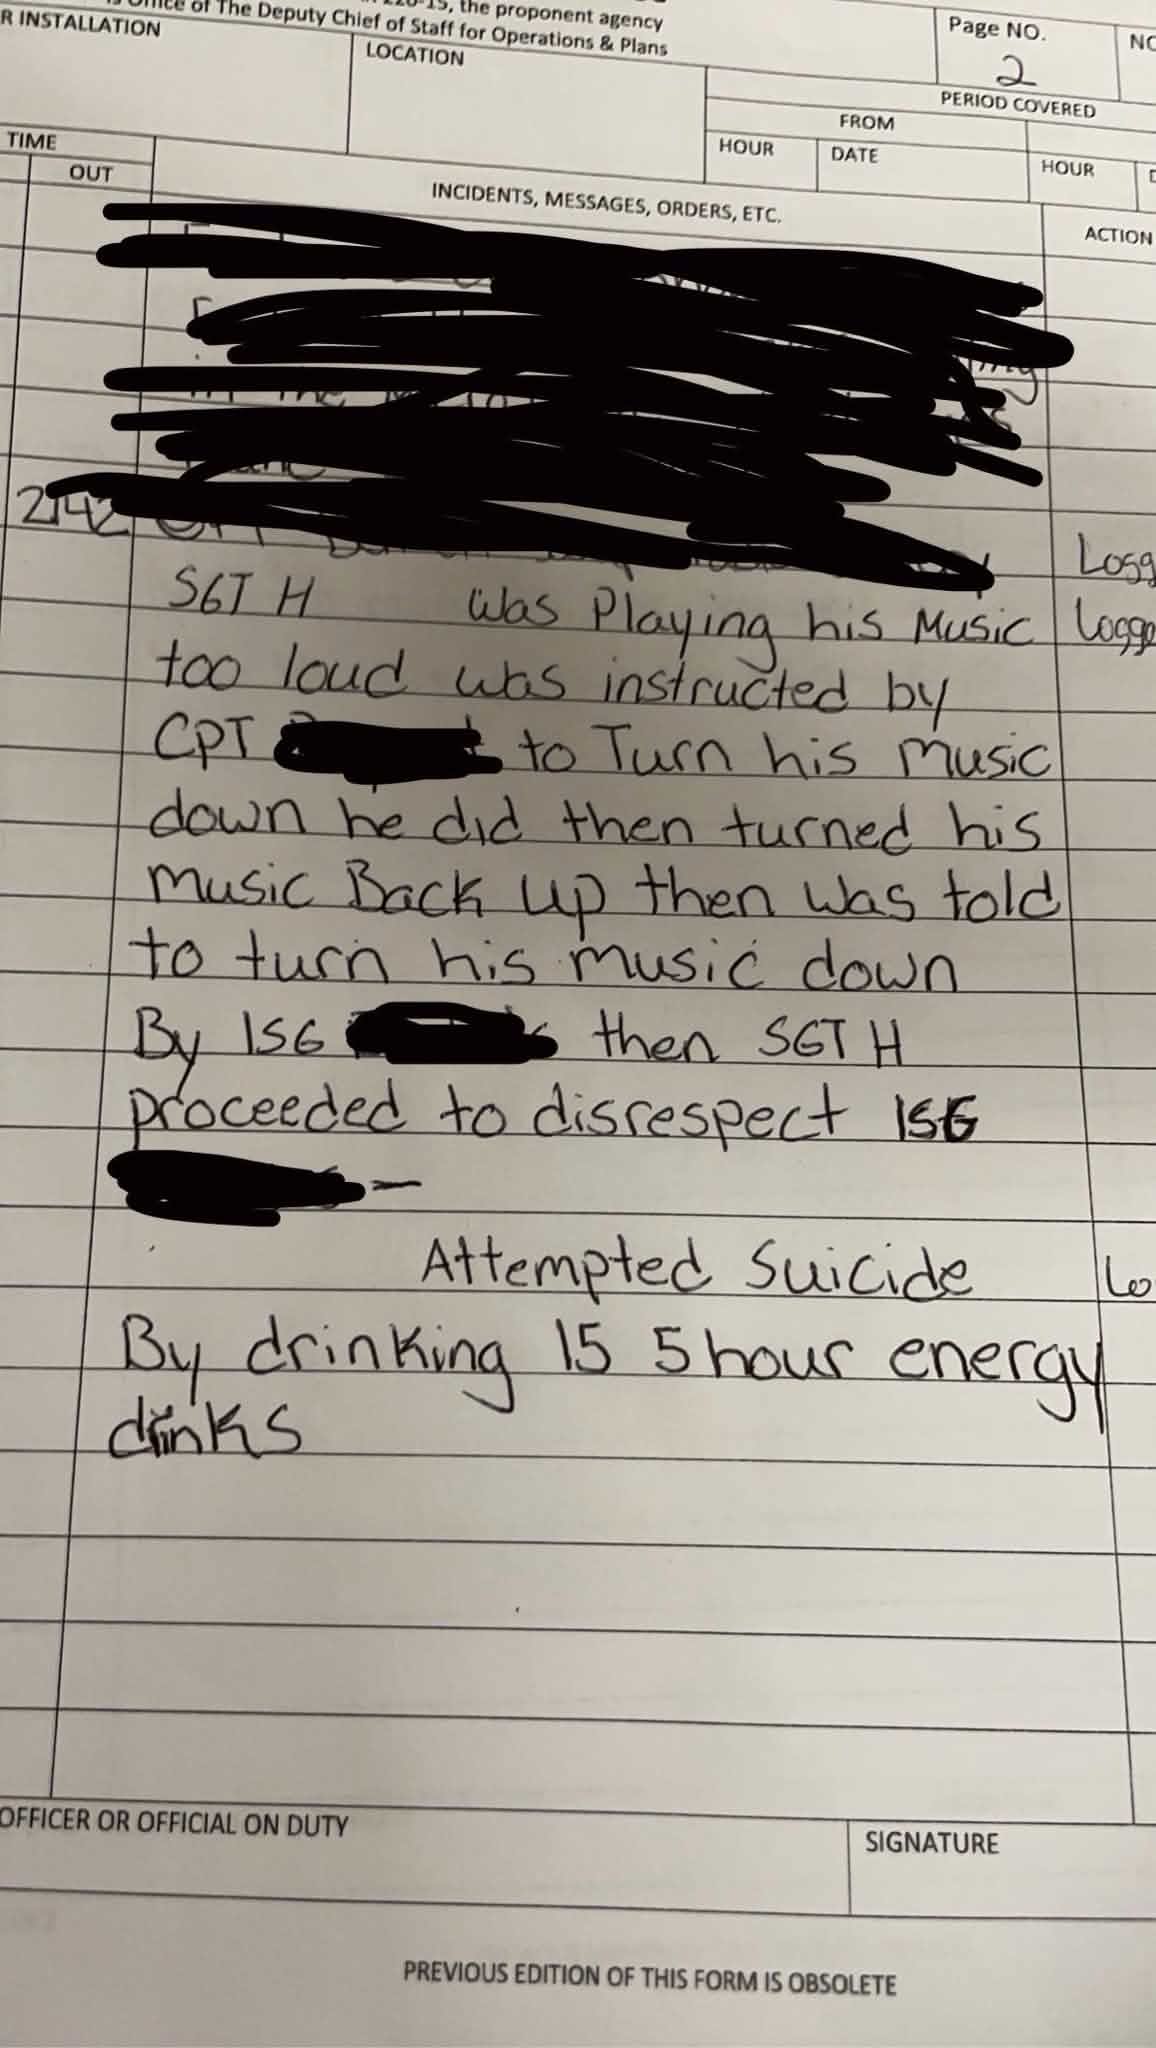 Office of The Deputy Chief of Staff for Operations & Plans
the proponent agency
R INSTALLATION
LOCATION
Page NO.
2
PERIOD COVERED
FROM
HOUR
DATE
HOUR
TIME
OUT
INCIDENTS, MESSAGES, ORDERS, ETC.
ACTION
2142
Logg
SGT H was Playing his Music
Logge
too loud was instructed by
CPT to Turn his music
down he did then turned his
music Back up then was told
to turn his music down
By 1SG then SGT H
proceeded to disrespect 1SG
–
Attempted Suicide
Lo
By drinking 15 5 hour energy
drinks
OFFICER OR OFFICIAL ON DUTY
SIGNATURE
PREVIOUS EDITION OF THIS FORM IS OBSOLETE